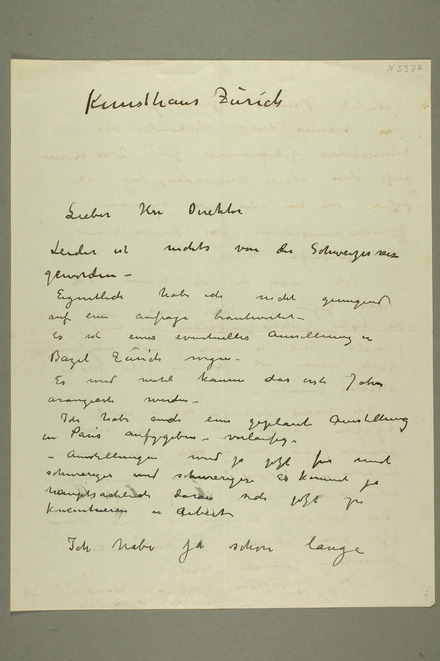 N 3377
Kunsthaus Zürich
Lieber Hrr Direktor
Leider ist nichts von der Schweizerreise
geworden –
Eigentlich habe ich nicht genügend
auf eine anfrage beantwortet –
Es ist eines eventuelles Ausstellung in
Bazel Zürich wegen –
Es wird wohl kaum das erste Jahr
arangiert werden –
Ich habe auch eine geplante Ausstellung
in Paris aufgegeben – vorläufig –
– Ausstellungen wird ja jetzt für mich
schwieriger und schwieriger es kommt ja
hauptsächlich darauf sich jetzt zu
in arbeit
Ich habe ja schon lange